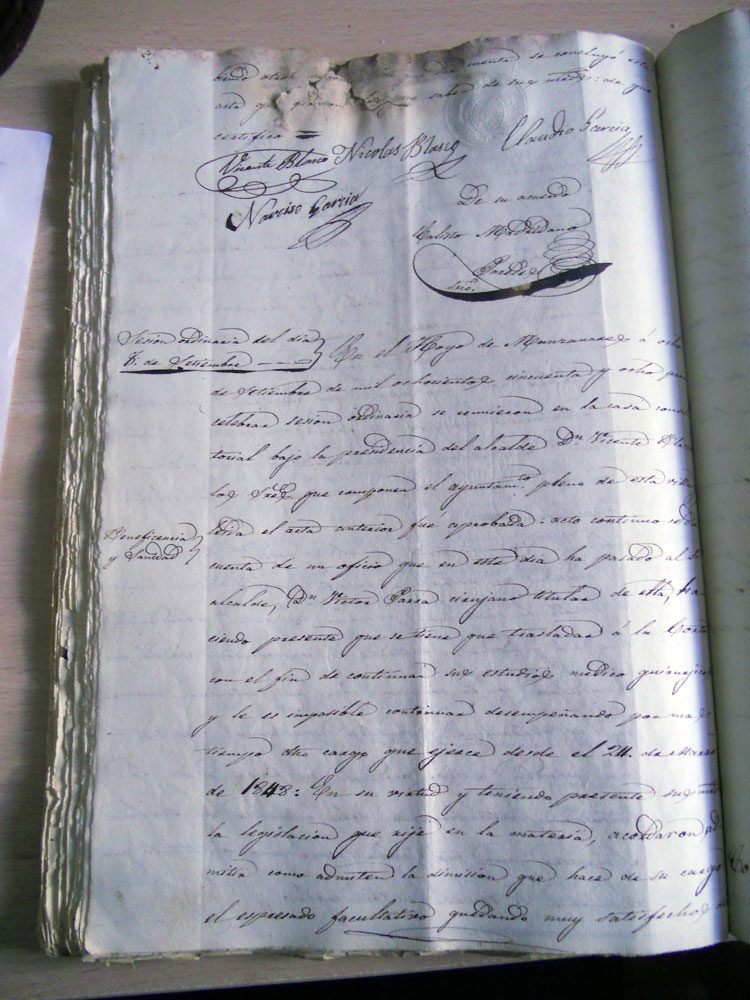 mente se concluyó esta
acta que firman los que saben de sus mrds: de que
certifico =
Vicente Blasco Nicolas Blasco Claudio Garcia
Narciso Garcia
De su acuerdo
Calisto Madridano
Paredes
Srio.
Sesion ordinaria del dia
8. de Setiembre
En el Hoyo de Manzanares á ocho
de Setiembre de mil ochocientos cincuenta y ocho para
celebrar sesion ordinaria se reunieron en la casa consis
torial bajo la presidencia del alcalde Dn. Vicente Blasco
los Sres. que componen el ayuntamto. pleno de esta villa
leida el acta anterior fué aprobada: acto continuo se dió
Beneficencia
y Sanidad
cuenta de un oficio que en este dia ha pasado al Sr.
alcalde, Dn. Victor Parra cirujano titular de esta, ha
ciendo presente que se tiene que trasladar á la Corte
con el fin de continuar sus estudios medico quirurjicos
y le es imposible continuar desempeñando por mas
tiempo dho cargo que ejerce desde el 24. de Marzo
de 1848: En su virtud y teniendo presente sus mrds
la legislacion que rije en la materia, acordaron ad
mitir como admiten la dimision que hace de su cargo
el espresado facultativo quedando muy satisfechos